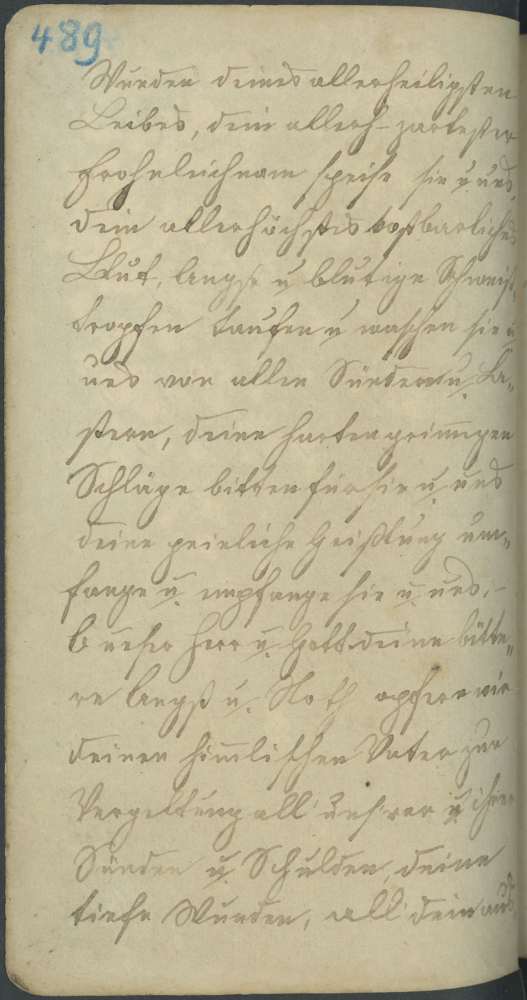 489
Wunden deines allerheiligsten
Leibes, dein allerh- zartester
Frohnleichnam speise sie u uns,
dein allerhöchstes kostbarliches
Blut, Angst u blutige Schweiß-
tropfen taufen u waschen sie u
uns von allen Sünden u. La„
stern, deine harten grimmigen
Schläge bitten für sie u. uns
deine peinliche Geißlung um„
fange u. empfange sie u. uns,-
O unser Herr u. Gott deine bitte„
re Angst u. Noth opfern wir
deinen himlischen Vater zur
Vergeltung all unsrer u ihrer
Sünden u. Schulden, deine
tiefe Wunden, all dein